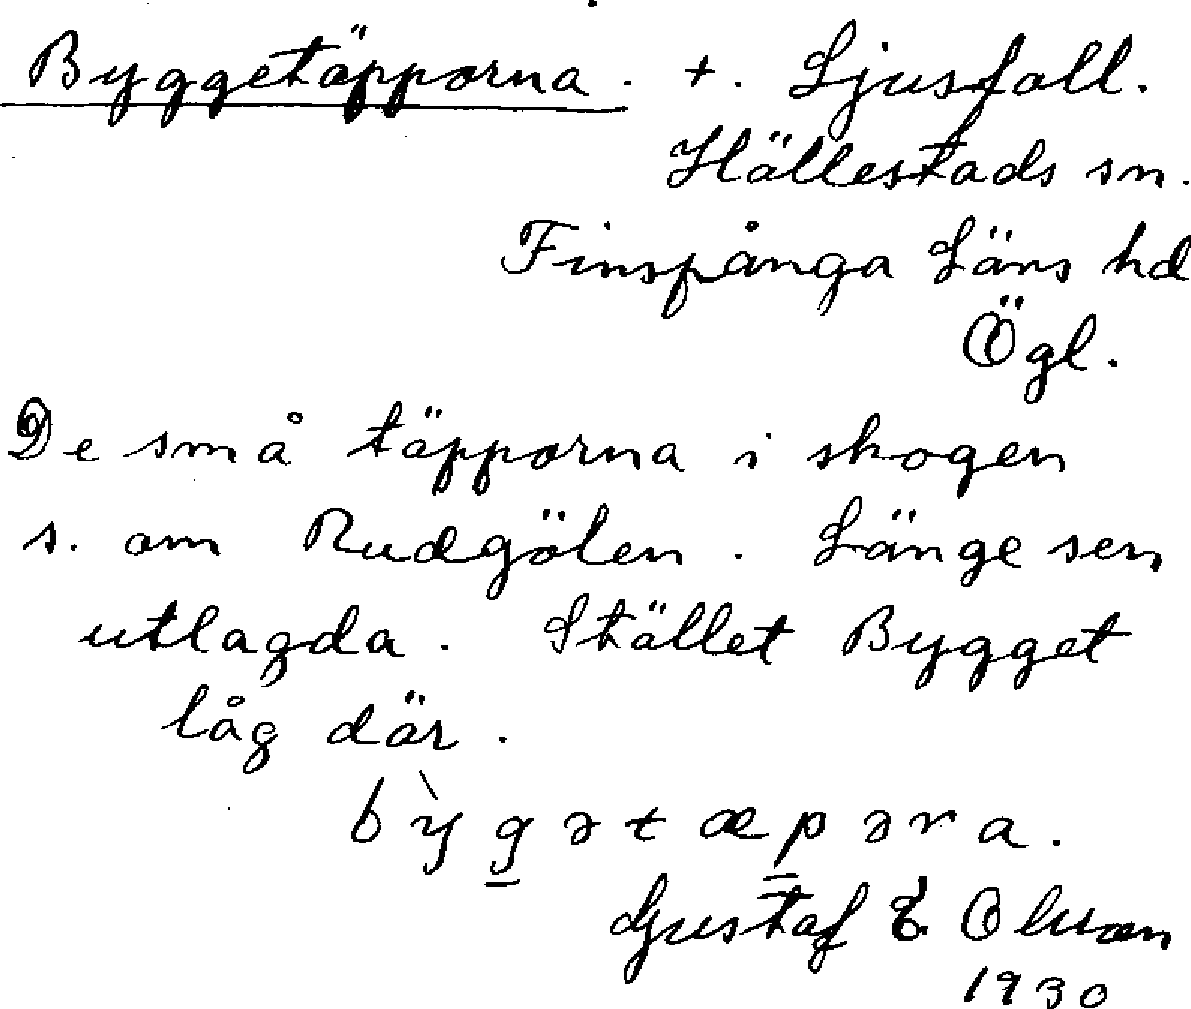 Byggetäpporna. +. Ljusfall.
Hällestads sn.
Finspånga Läns hd
Ögl.
De små täpporna i skogen
s. om Rudgölen. Länge sen
utlagda. Stället Bygget
låg där.
bỳg̲ətæp̲ərna.
Gustaf E Olsson
1930